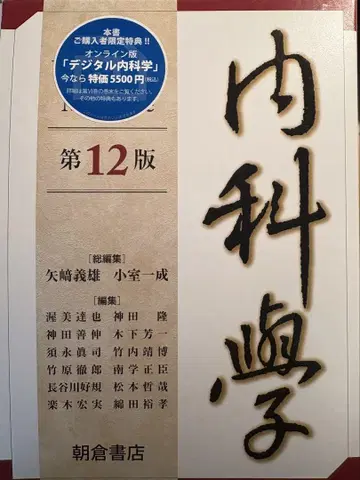 本書
ご購入者限定特典!!
オンライン版
「デジタル内科学」
今なら 特価5500円(税込)
その他の特典もあります。
第12版
[総編集]
矢﨑義雄 小室一成
[編集]
渥美達也 神田 隆
神田善伸 木下芳一
須永眞司 竹内靖博
竹原徹郎 南学正臣
長谷川好規 松本哲哉
楽木宏実 綿田裕孝
朝倉書店
内科學